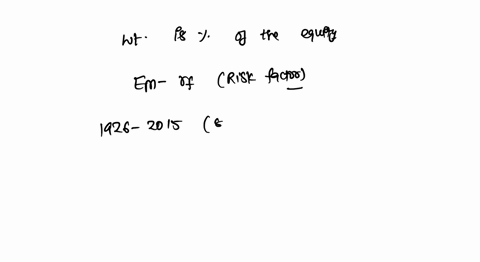 wt. is % of the equity
Em - rf (Risk factor)
1926 - 2015 (